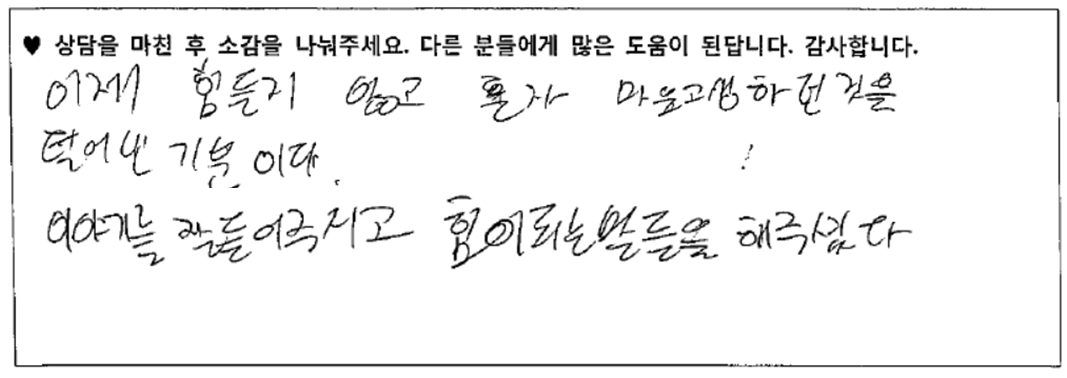 ♥ 상담을 마친 후 소감을 나눠주세요. 다른 분들에게 많은 도움이 된답니다. 감사합니다.
이제 힘들지 않고 혼자 마음고생하던 것을
털어낸 기분이다.
이야기를 잘들어주시고 힘이되는말들을 해주셨다